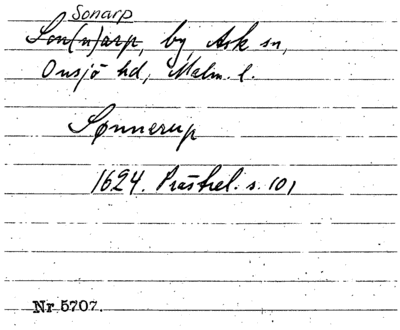 Sonarp
Son(n)arp, by, Ask sn,
Onsjö hd, Malm. l.
Sønnerup
1624. Prästrel. s. 101
Nr 5707.